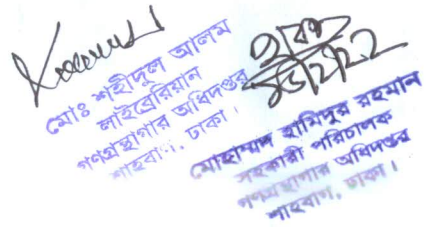 মোঃ শহীদুল আলম
লাইব্রেরিয়ান
গণগ্রন্থাগার অধিদপ্তর
শাহবাগ, ঢাকা।
মোহাম্মদ হামিদুর রহমান
সহকারী পরিচালক
গণগ্রন্থাগার অধিদপ্তর
শাহবাগ, ঢাকা।